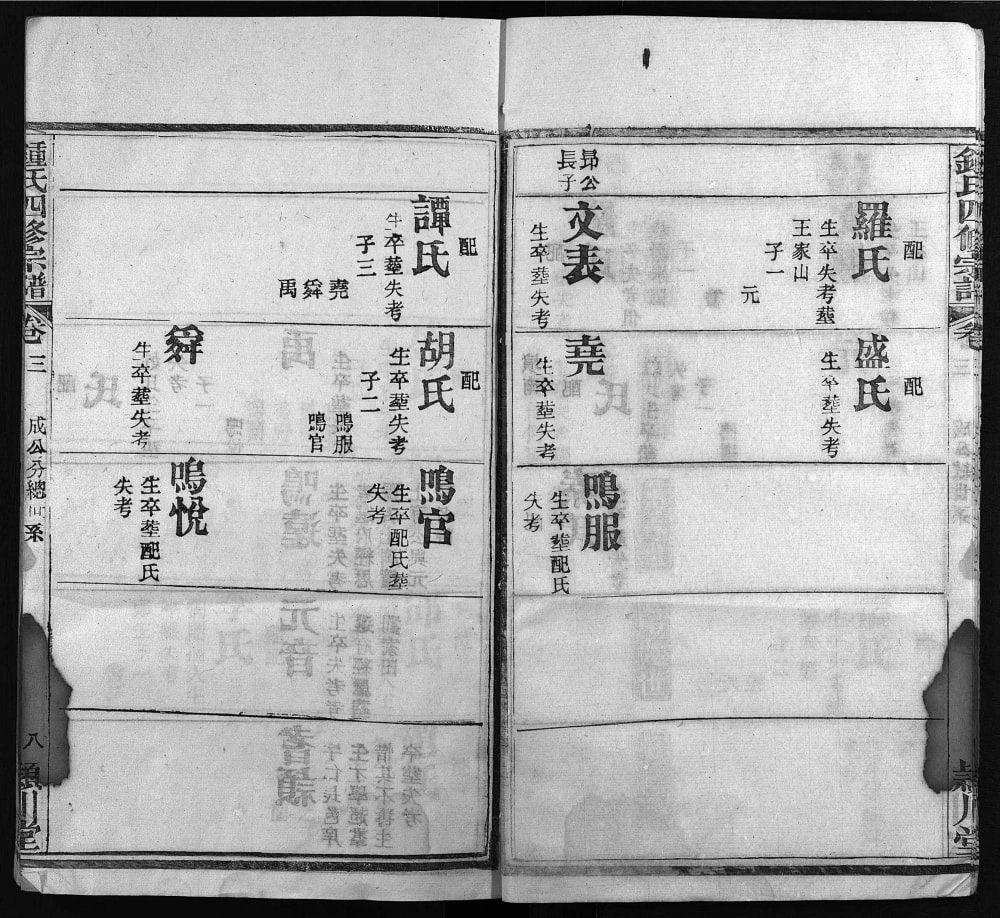 鍾氏四修宗譜
羅氏
配
生卒失考葬
王家山
子一
元
昂公
長子
文表
生卒葬失考
盛氏
配
生卒葬失考
堯
生卒葬失考
鳴服
生卒葬配氏
失考
潁川堂
譚氏
配
生卒葬失考
子三
堯
舜
禹
胡氏
配
生卒葬失考
子二
鳴服
鳴官
舜
生卒葬失考
鳴官
生卒配氏葬
失考
鳴悅
生卒葬配氏
失考
鍾氏四修宗譜
卷三
成公
總
系
八
潁川堂